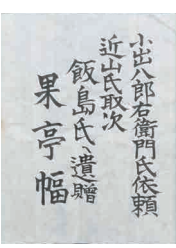 小出八郎右衛門氏依頼
近山氏取次
飯島氏ヘ遺贈
果亭幅